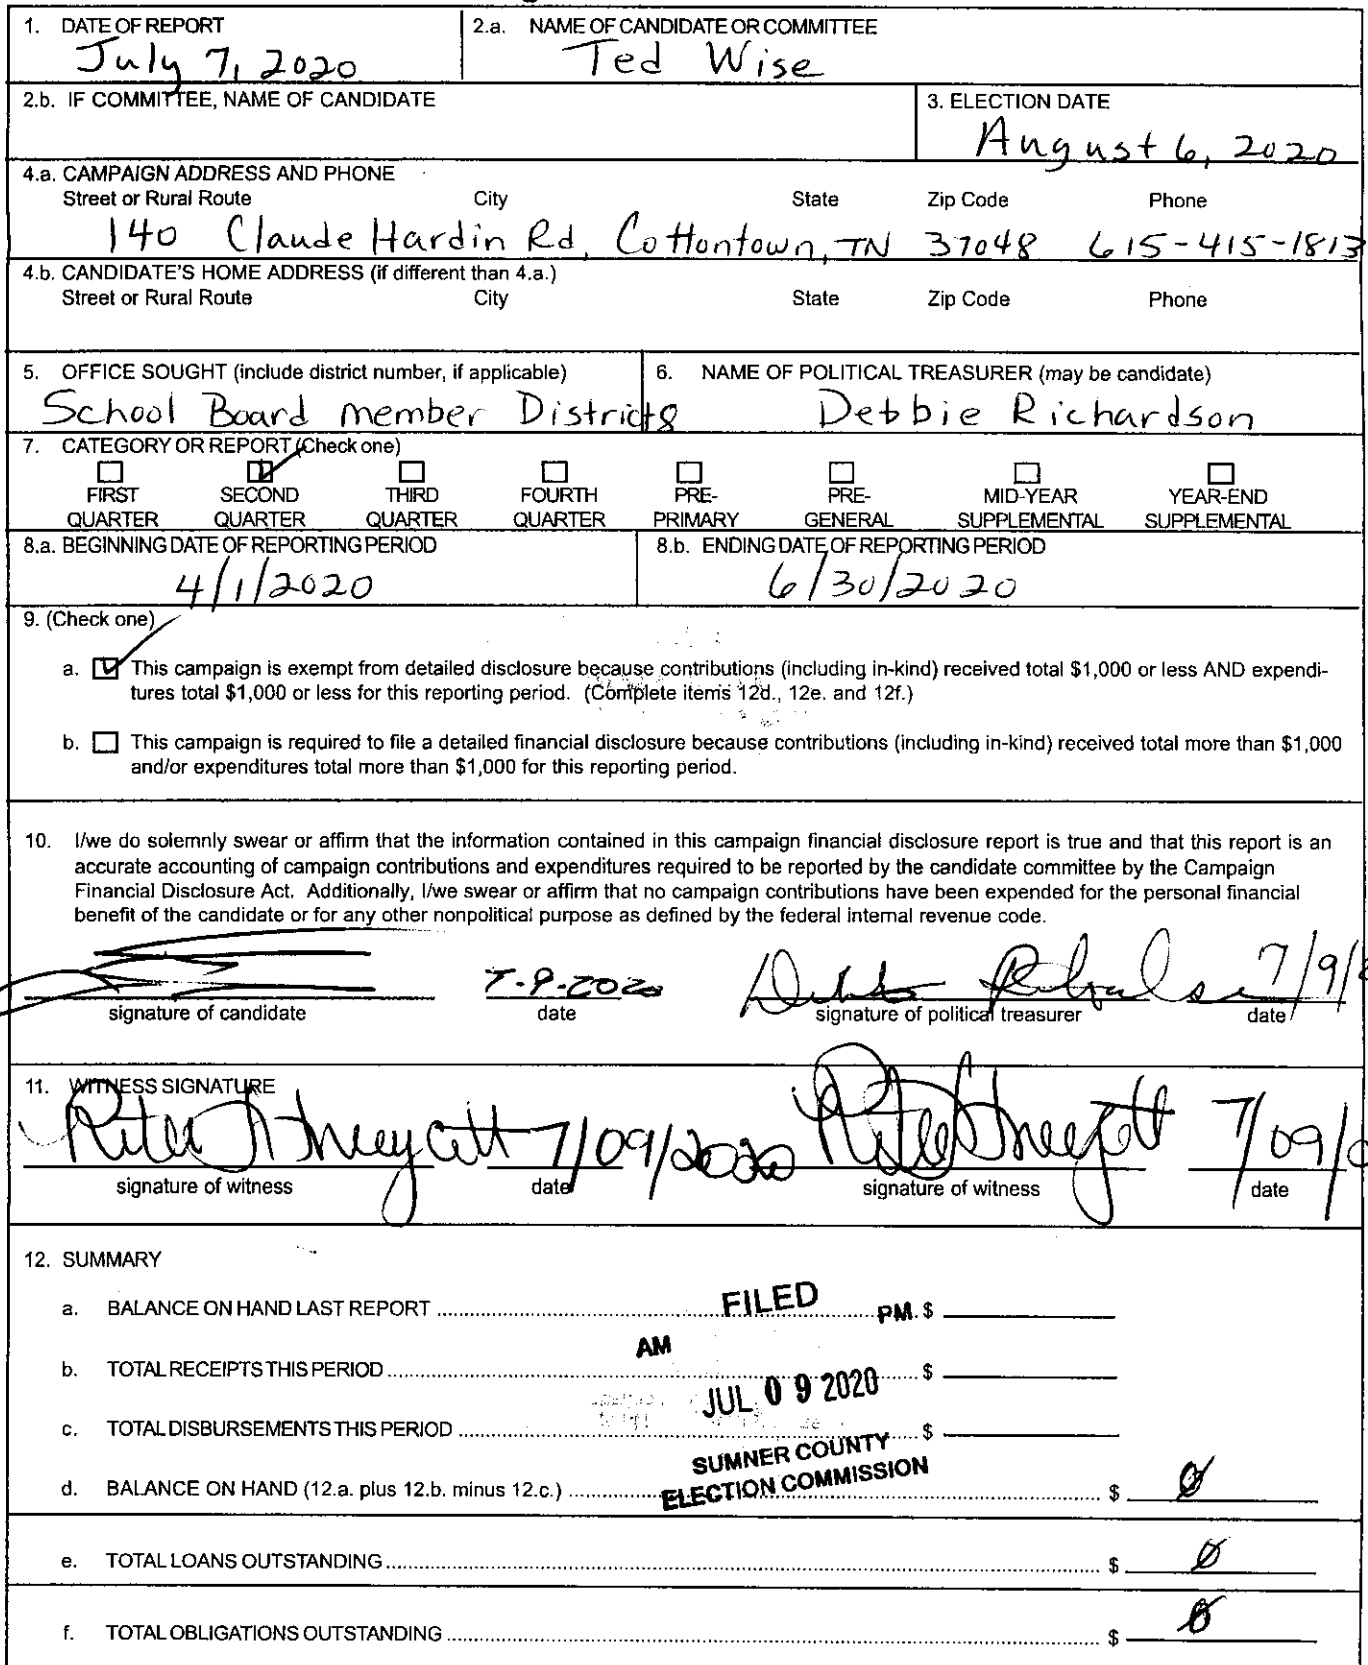 1. DATE OF REPORT
July 7, 2020
2.a. NAME OF CANDIDATE OR COMMITTEE
Ted Wise
2.b. IF COMMITTEE, NAME OF CANDIDATE
3. ELECTION DATE
August 6, 2020
4.a. CAMPAIGN ADDRESS AND PHONE
Street or Rural Route City State Zip Code Phone
140 Claude Hardin Rd, Cottontown, TN 37048 615-415-1813
4.b. CANDIDATE'S HOME ADDRESS (if different than 4.a.)
Street or Rural Route City State Zip Code Phone
5. OFFICE SOUGHT (include district number, if applicable)
School Board member District 8
6. NAME OF POLITICAL TREASURER (may be candidate)
Debbie Richardson
7. CATEGORY OR REPORT (Check one)
FIRST QUARTER
SECOND QUARTER
THIRD QUARTER
FOURTH QUARTER
PRE-PRIMARY
PRE-GENERAL
MID-YEAR SUPPLEMENTAL
YEAR-END SUPPLEMENTAL
8.a. BEGINNING DATE OF REPORTING PERIOD
4/1/2020
8.b. ENDING DATE OF REPORTING PERIOD
6/30/2020
9. (Check one)
a. This campaign is exempt from detailed disclosure because contributions (including in-kind) received total $1,000 or less AND expendi-
tures total $1,000 or less for this reporting period. (Complete items 12d., 12e. and 12f.)
b. This campaign is required to file a detailed financial disclosure because contributions (including in-kind) received total more than $1,000
and/or expenditures total more than $1,000 for this reporting period.
10. I/we do solemnly swear or affirm that the information contained in this campaign financial disclosure report is true and that this report is an
accurate accounting of campaign contributions and expenditures required to be reported by the candidate committee by the Campaign
Financial Disclosure Act. Additionally, I/we swear or affirm that no campaign contributions have been expended for the personal financial
benefit of the candidate or for any other nonpolitical purpose as defined by the federal internal revenue code.
7-9-2020 7/9/
signature of candidate date signature of political treasurer date
11. WITNESS SIGNATURE
7/09/2020 7/09/
signature of witness date signature of witness date
12. SUMMARY
a. BALANCE ON HAND LAST REPORT $
FILED
AM PM
b. TOTAL RECEIPTS THIS PERIOD $
JUL 09 2020
c. TOTAL DISBURSEMENTS THIS PERIOD $
SUMNER COUNTY
ELECTION COMMISSION
d. BALANCE ON HAND (12.a. plus 12.b. minus 12.c.) $ 0
e. TOTAL LOANS OUTSTANDING $ 0
f. TOTAL OBLIGATIONS OUTSTANDING $ 0